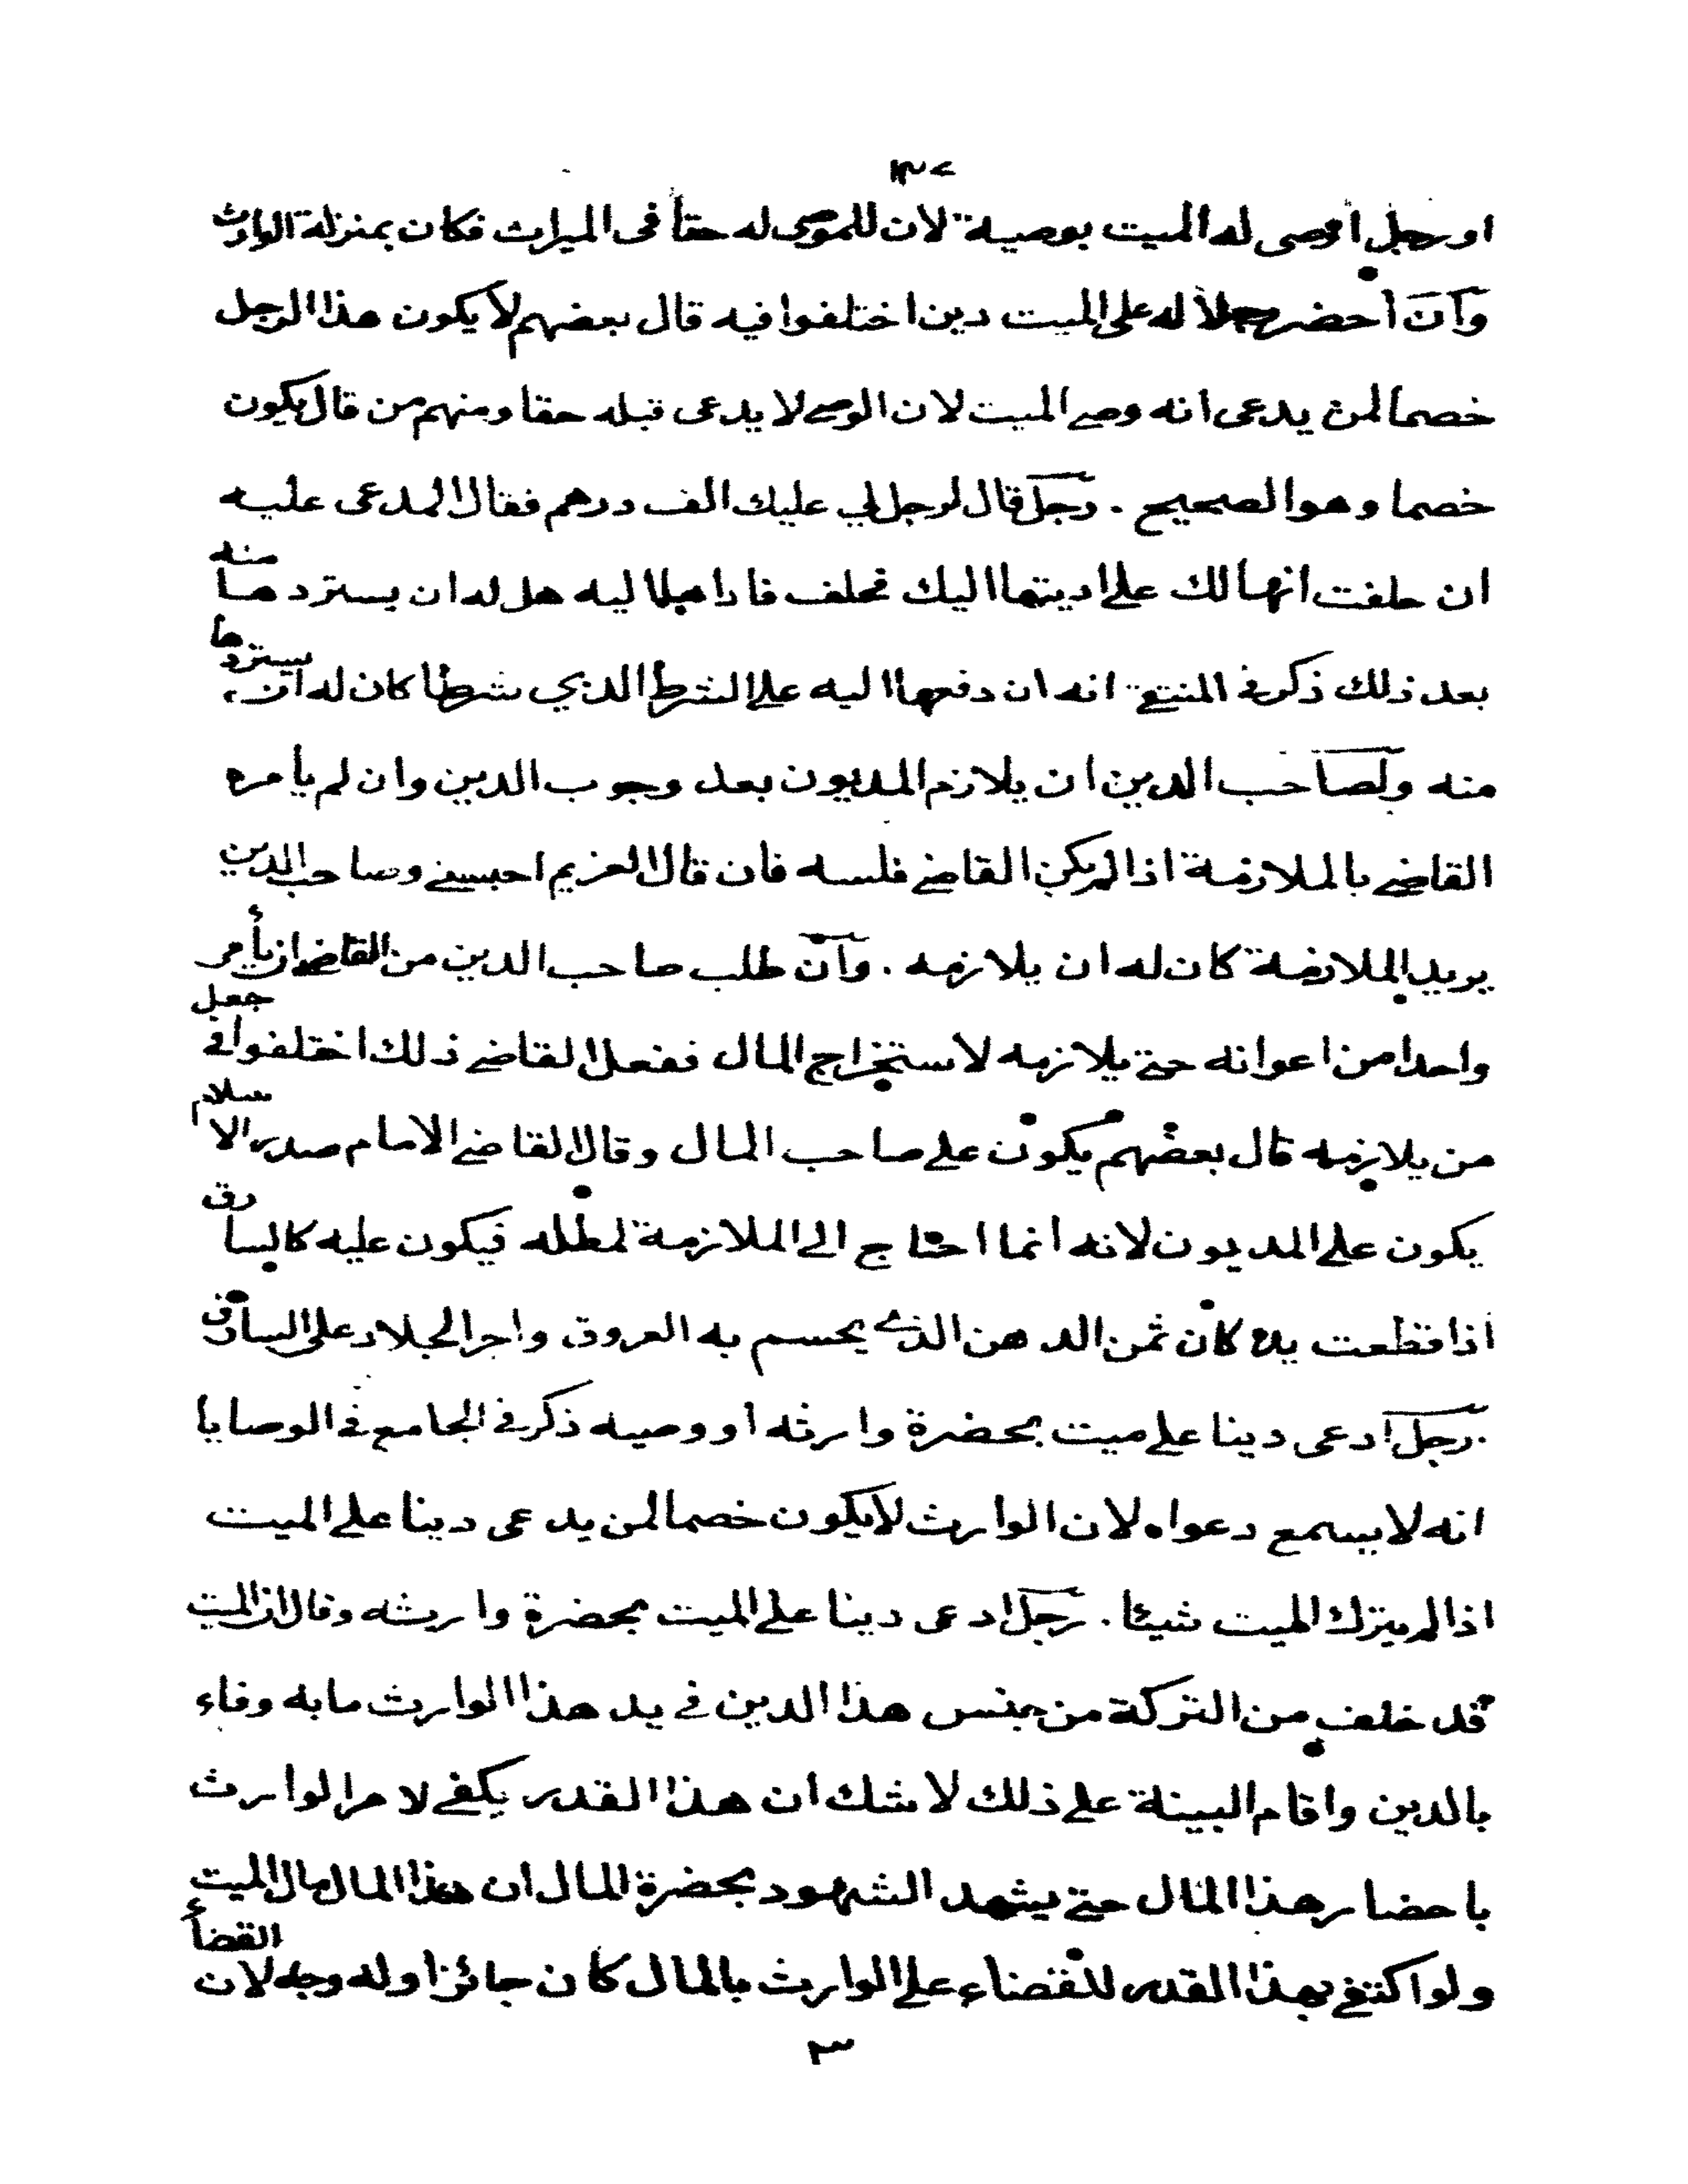 ١٣٧
او رجل أوصى له الميت بوصية لان للموصى له حقا فى الميراث فكان بمنزلة الوارث
وآن أحضر رجلا له على الميت دين اختلفوا فيه قال بعضهم لا يكون هذا الرجل
خصما لمن يدعى انه وصے الميت لان الوصے لا يدعى قبله حقا ومنهم من قال يكون
خصما وهو الصحيح . رجل قال لرجل لي عليك الف درهم فقال المدعى عليه
ان حلفت انها لك علي اديتها اليك فحلف فاداها اليه هل له ان يستردها منه
بعد ذلك ذكر في المنتقى انه ان دفعها اليه على الشرط الذي شرطا كان له ان يستردها
منه ولصاحب الدين ان يلازم المديون بعد وجوب الدين وان لم يأمره
القاضے بالملازمة اذا لم يكن القاضے فلسه فان قال الغريم احبسنے وصاحب الدين
يريد الملازمة كان له ان يلازمه . وآن طلب صاحب الدين من القاضے ان يأمر
واحدا من اعوانه حتے يلازمه لاستخراج المال ففعل القاضے ذلك اختلفوا في جعل
من يلازمه قال بعضهم يكون علے صاحب المال وقال القاضے الامام صدر الاسلام
يكون علے المديون لانه انما احتاج الى الملازمة لمطله فيكون عليه كالسارق
اذا قطعت يده كان ثمن الدهن الذے يحسم به العروق واجر الجلاد على السارق
. رجل ادعى دينا علے ميت بحضرة وارثه أو وصيه ذكر في الجامع في الوصايا
انه لا يسمع دعواه لان الوارث لا يكون خصما لمن يدعى دينا علے الميت
اذا لم يترك الميت شيئا . رجل ادعى دينا علے الميت بحضرة وارثه وقال ان الميت
قد خلف من التركة من جنس هذا الدين في يد هذا الوارث ما به وفاء
بالدين واقام البينة علے ذلك لا شك ان هذا القدر يكفے لامر الوارث
باحضار هذا المال حتے يشهد الشهود بحضرة المال ان هذا المال مال الميت
ولو اكتفے بهذا القدر للقضاء علے الوارث بالمال كان جائزا وله وجه لان القضأ
٣